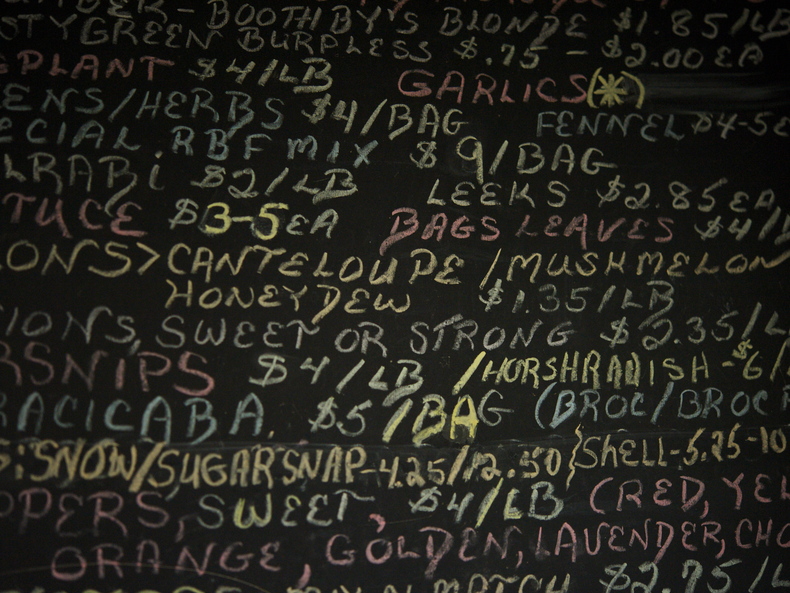 MBER - BOOTHBY'S BLONDE $1.85/LB
STYGREEN BURPLESS $.75 - $2.00 EA
GPLANT $4/LB GARLICS(*)
ENS/HERBS $4/BAG FENNEL $4-5E
ECIAL RBF MIX $9/BAG
LRABI $2/LB LEEKS $2.85 EA,
TUCE $3-5EA BAGS LEAVES $4/L
ONS>CANTELOUPE/MUSHMELON
HONEYDEW $1.35/LB
IONS, SWEET OR STRONG $2.35/L
RSNIPS $4/LB /HORSHRADISH-$6/
RACICABA. $5/BAG (BROC/BROC R
S:SNOW/SUGARSNAP-4.25/P2.50}SHELL-5.25-10
PPERS, SWEET $4/LB (RED, YEL
ORANGE, GOLDEN, LAVENDER, CHO
N MATCH $2.75/L